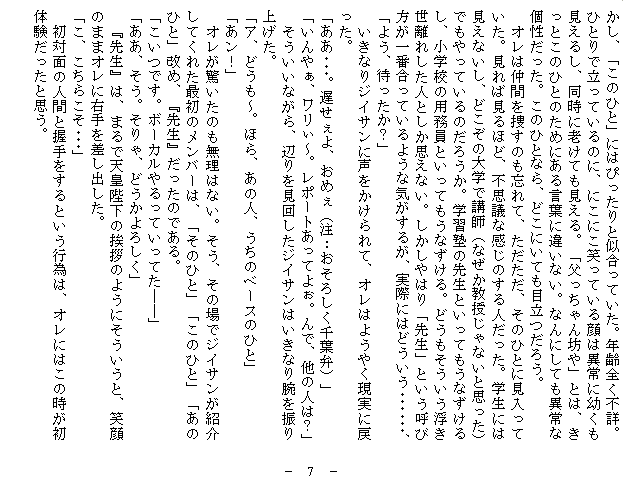 かし、「このひと」にはぴったりと似合っていた。年齢全く不詳。
ひとりで立っているのに、にこにこ笑っている顔は異常に幼くも
見えるし、同時に老けても見える。「父っちゃん坊や」とは、き
っとこのひとのためにある言葉に違いない。なんにしても異常な
個性だった。このひとなら、どこにいても目立つだろう。
オレは仲間を捜すのも忘れて、ただただ、そのひとに見入って
いた。見れば見るほど、不思議な感じのする人だった。学生には
見えないし、どこぞの大学で講師（なぜか教授じゃないと思った）
でもやっているのだろうか。学習塾の先生といってもうなずける
し、小学校の用務員といってもうなずける。どうもそういう浮き
世離れした人としか思えない。しかしやはり「先生」という呼び
方が一番合っているような気がするが、実際にはどういう・・・・・・、
「よう、待ったか？」
いきなりジイサンに声をかけられて、オレはようやく現実に戻
った。
「ああ・・。遅せぇよ、おめぇ（注：おそろしく千葉弁）」
「いんやぁ、ワリぃ〜。レポートあってよぉ。んで、他の人は？」
そういいながら、辺りを見回したジイサンはいきなり腕を振り
上げた。
「ア、どうも〜。ほら、あの人、うちのベースのひと」
「あン！」
オレが驚いたのも無理はない。そう、その場でジイサンが紹介
してくれた最初のメンバーは、「そのひと」「このひと」「あの
ひと」改め、『先生』だったのである。
「こいつです。ボーカルやるっていってた――」
「ああ、そう。そりゃ、どうかよろしく」
『先生』は、まるで天皇陛下の挨拶のようにそういうと、笑顔
のままオレに右手を差し出した。
「こ、こちらこそ・・」
初対面の人間と握手をするという行為は、オレにはこの時が初
体験だったと思う。
－ 7 －